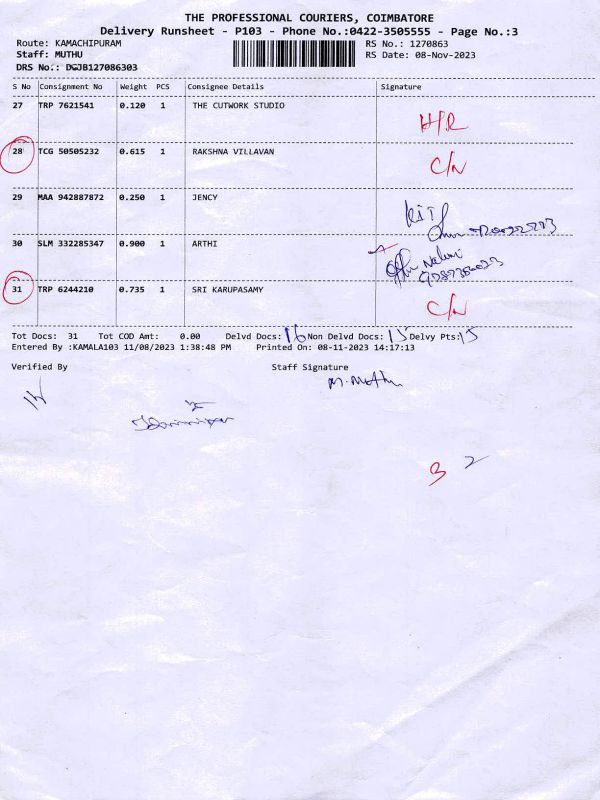 THE PROFESSIONAL COURIERS, COIMBATORE
Delivery Runsheet - P103 - Phone No.:0422-3505555 - Page No.:3
Route: KAMACHIPURAM RS No.: 1270863
Staff: MUTHU RS Date: 08-Nov-2023
DRS No.: DGJB127086303
S No Consignment No Weight PCS Consignee Details Signature
27 TRP 7621541 0.120 1 THE CUTWORK STUDIO
H/R
28 TCG 50505232 0.615 1 RAKSHNA VILLAVAN
C/N
29 MAA 942887872 0.250 1 JENCY
30 SLM 332285347 0.900 1 ARTHI
31 TRP 6244210 0.735 1 SRI KARUPASAMY
C/N
Tot Docs: 31 Tot COD Amt: 0.00 Delvd Docs: 16 Non Delvd Docs: 15 Delvy Pts: 15
Entered By :KAMALA103 11/08/2023 1:38:48 PM Printed On: 08-11-2023 14:17:13
Verified By Staff Signature
M. Muthu
3 2